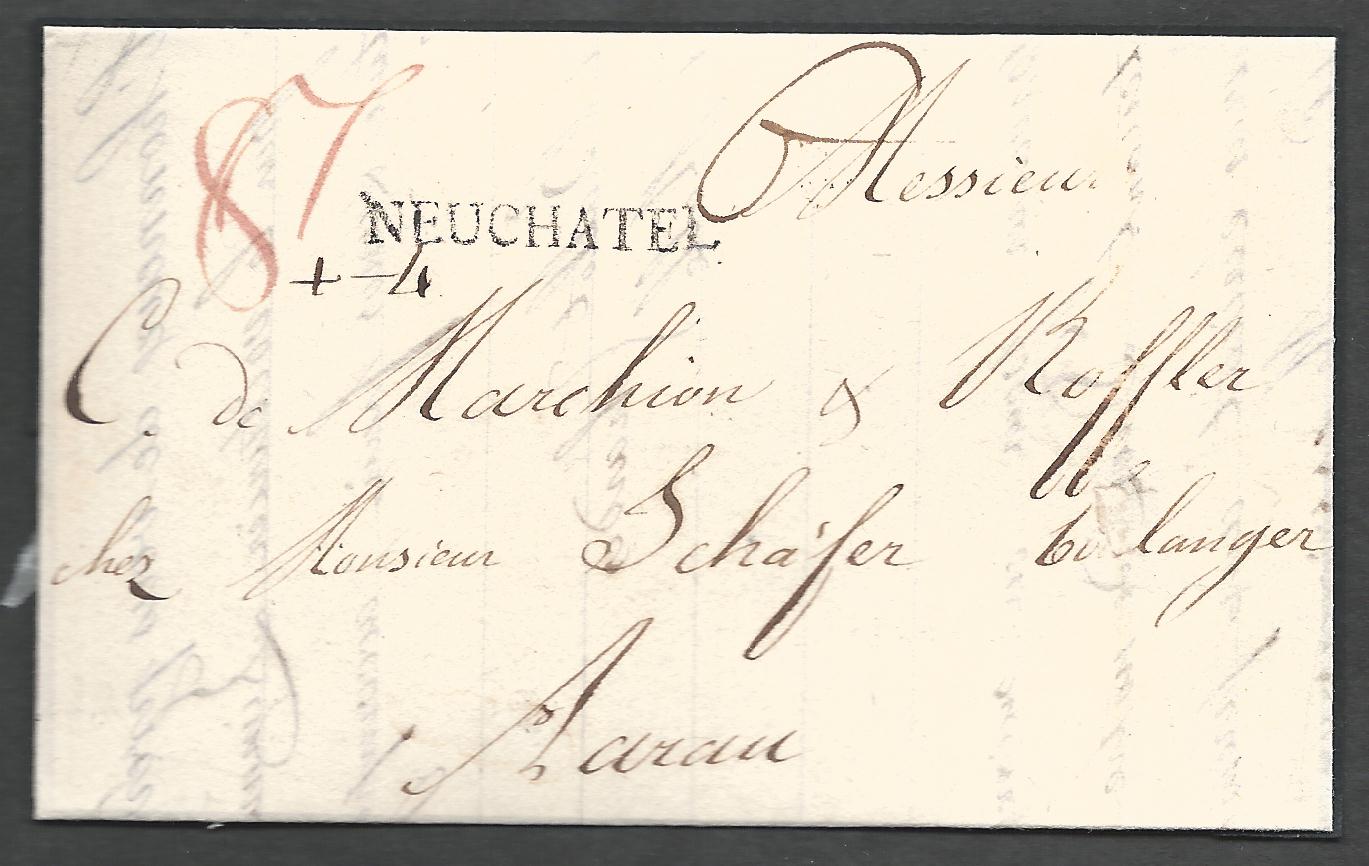 87
Messieur
NEUCHATEL
+ — 4
C. de Marchion & Roffler
chez Monsieur Schäfer boulanger
Aarau